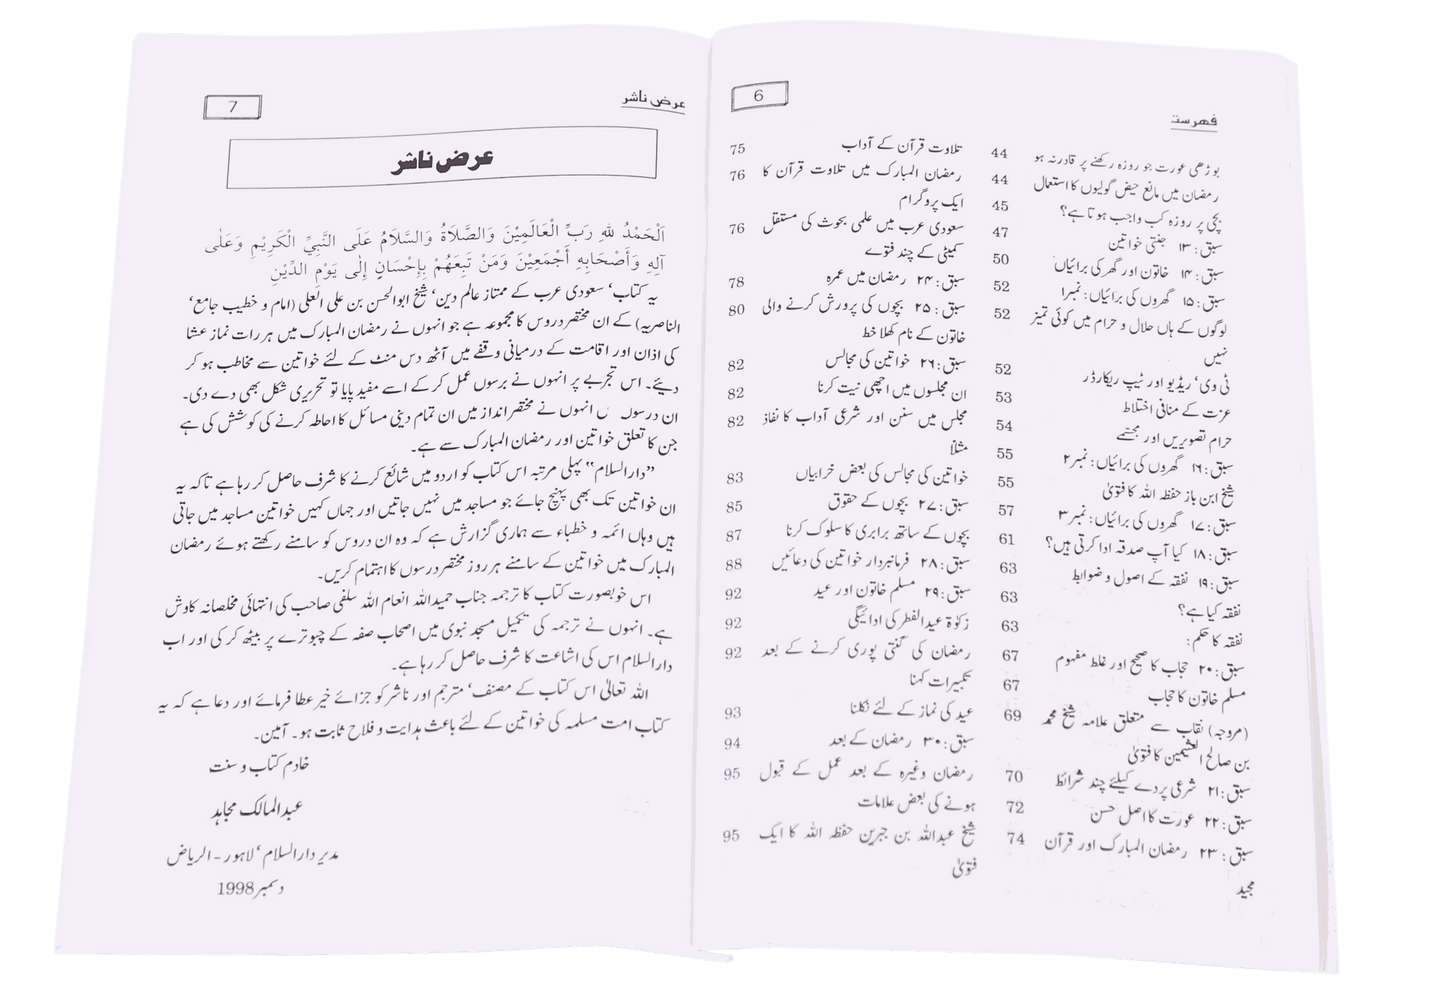 6
فہرست
بوڑھی عورت جو روزہ رکھنے پر قادر نہ ہو 44
رمضان میں مانع حیض گولیوں کا استعمال 44
بچی پر روزہ کب واجب ہوتا ہے؟ 45
سبق: ۱۳ جنتی خواتین 47
سبق: ۱۴ خاتون اور گھر کی برائیاں 50
سبق: ۱۵ گھروں کی برائیاں: نمبر۱ 52
لوگوں کے ہاں حلال و حرام میں کوئی تمیز 52
نہیں
ٹی وی‘ ریڈیو اور ٹیپ ریکارڈر 52
عزت کے منافی اختلاط 53
حرام تصویریں اور مجسمے 54
سبق: ۱۶ گھروں کی برائیاں: نمبر۲ 55
شیخ ابن باز حفظہ اللہ کا فتویٰ 55
سبق: ۱۷ گھروں کی برائیاں: نمبر۳ 57
سبق: ۱۸ کیا آپ صدقہ ادا کرتی ہیں؟ 61
سبق: ۱۹ نفقہ کے اصول و ضوابط 63
نفقہ کیا ہے؟ 63
نفقہ کا حکم: 63
سبق: ۲۰ حجاب کا صحیح اور غلط مفہوم 67
مسلم خاتون کا حجاب 67
(مروجہ) نقاب سے متعلق علامہ شیخ محمد 69
بن صالح العثیمین کا فتویٰ
سبق: ۲۱ شرعی پردے کیلئے چند شرائط 70
سبق: ۲۲ عورت کا اصل حسن 72
سبق: ۲۳ رمضان المبارک اور قرآن 74
مجید
تلاوت قرآن کے آداب 75
رمضان المبارک میں تلاوت قرآن کا 76
ایک پروگرام
سعودی عرب میں علمی بحوث کی مستقل 76
کمیٹی کے چند فتوے
سبق: ۲۴ رمضان میں عمرہ 78
سبق: ۲۵ بچوں کی پرورش کرنے والی 80
خاتون کے نام کھلا خط
سبق: ۲۶ خواتین کی مجالس 82
ان مجلسوں میں اچھی نیت کرنا 82
مجلس میں سنن اور شرعی آداب کا نفاذ 82
مثلاً
خواتین کی مجالس کی بعض خرابیاں 83
سبق: ۲۷ بچوں کے حقوق 85
بچوں کے ساتھ برابری کا سلوک کرنا 87
سبق: ۲۸ فرمانبردار خواتین کی دعائیں 88
سبق: ۲۹ مسلم خاتون اور عید 92
زکوٰۃ عیدالفطر کی ادائیگی 92
رمضان کی گنتی پوری کرنے کے بعد 92
تکبیرات کہنا
عید کی نماز کے لئے نکلنا 93
سبق: ۳۰ رمضان کے بعد 94
رمضان وغیرہ کے بعد عمل کے قبول 95
ہونے کی بعض علامات
شیخ عبداللہ بن جبرین حفظہ اللہ کا ایک 95
فتویٰ
عرض ناشر
7
عرض ناشر
اَلْحَمْدُ للهِ رَبِّ الْعَالَمِيْنَ وَالصَّلاَةُ وَالسَّلاَمُ عَلَى النَّبِيِّ الْكَرِيْمِ وَعَلٰى
آلِهِ وَأَصْحَابِهِ أَجْمَعِيْنَ وَمَنْ تَبِعَهُمْ بِإِحْسَانٍ إِلٰى يَوْمِ الدِّيْنِ
یہ کتاب‘ سعودی عرب کے ممتاز عالم دین‘ شیخ ابوالحسن بن علی العلی (امام و خطیب جامع‘
الناصریہ) کے ان مختصر دروس کا مجموعہ ہے جو انہوں نے رمضان المبارک میں ہر رات نماز عشا
کی اذان اور اقامت کے درمیانی وقفے میں آٹھ دس منٹ کے لئے خواتین سے مخاطب ہو کر
دیئے۔ اس تجربے پر انہوں نے برسوں عمل کر کے اسے مفید پایا تو تحریری شکل بھی دے دی۔
ان درسوں انہوں نے مختصر انداز میں ان تمام دینی مسائل کا احاطہ کرنے کی کوشش کی ہے
جن کا تعلق خواتین اور رمضان المبارک سے ہے۔
”دارالسلام“ پہلی مرتبہ اس کتاب کو اردو میں شائع کرنے کا شرف حاصل کر رہا ہے تاکہ یہ
ان خواتین تک بھی پہنچ جائے جو مساجد میں نہیں جاتیں اور جہاں کہیں خواتین مساجد میں جاتی
ہیں وہاں ائمہ و خطباء سے ہماری گزارش ہے کہ وہ ان دروس کو سامنے رکھتے ہوئے رمضان
المبارک میں خواتین کے سامنے ہر روز مختصر درسوں کا اہتمام کریں۔
اس خوبصورت کتاب کا ترجمہ جناب حمیداللہ انعام اللہ سلفی صاحب کی انتہائی مخلصانہ کاوش
ہے۔ انہوں نے ترجمہ کی تکمیل مسجد نبوی میں اصحاب صفہ کے چبوترے پر بیٹھ کر کی اور اب
دارالسلام اس کی اشاعت کا شرف حاصل کر رہا ہے۔
اللہ تعالیٰ اس کتاب کے مصنف‘ مترجم اور ناشر کو جزائے خیر عطا فرمائے اور دعا ہے کہ یہ
کتاب امت مسلمہ کی خواتین کے لئے باعث ہدایت و فلاح ثابت ہو۔ آمین۔
خادم کتاب و سنت
عبدالمالک مجاہد
مدیر دارالسلام‘ لاہور - الریاض
دسمبر 1998